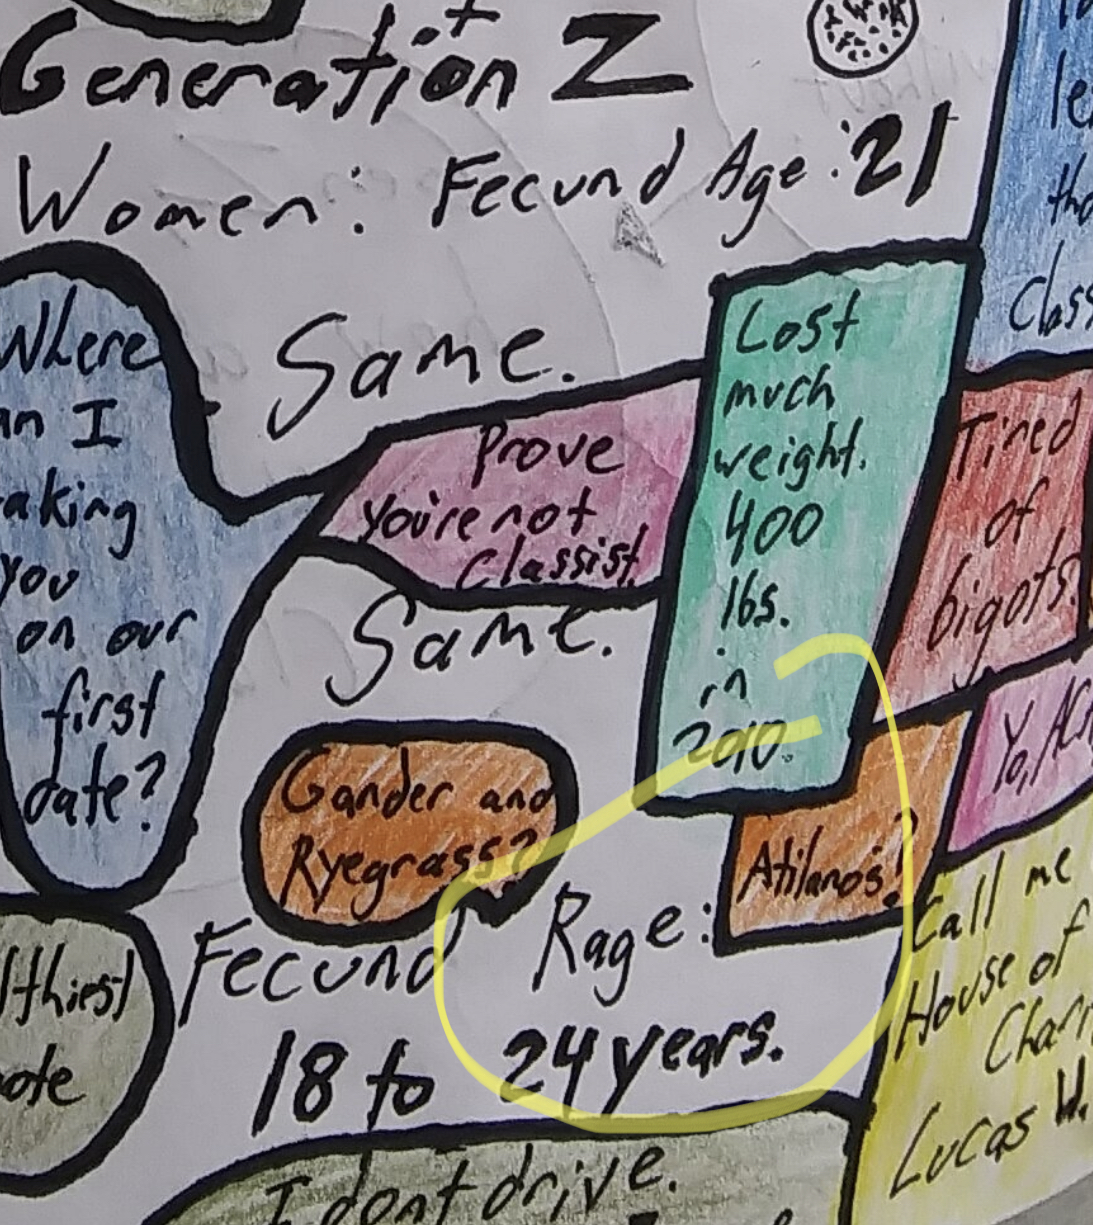 Generation Z
Women: Fecund Age: 21
Same.
Where
I
you
on our
first
date?
Prove
you're not
classist.
Lost
much
weight.
400
lbs.
in
2010.
Tired
of
bigots.
Class
Same.
Gander and
Ryegrass?
Atilano's?
Yo,
Fecund Rage:
18 to 24 years.
Call me
House of
Lucas W.
I dont drive.